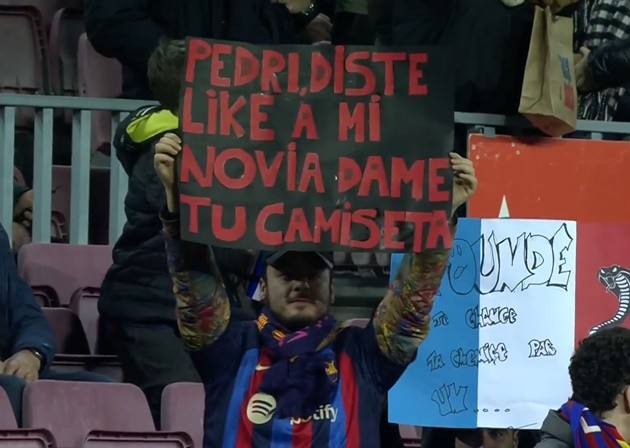 PEDRI,DISTE
LIKE A MI
NOVIA DAME
TU CAMISETA
OUNDÉ
JE CHANGE
TA CHEMISE PAR
UN....
Spotify